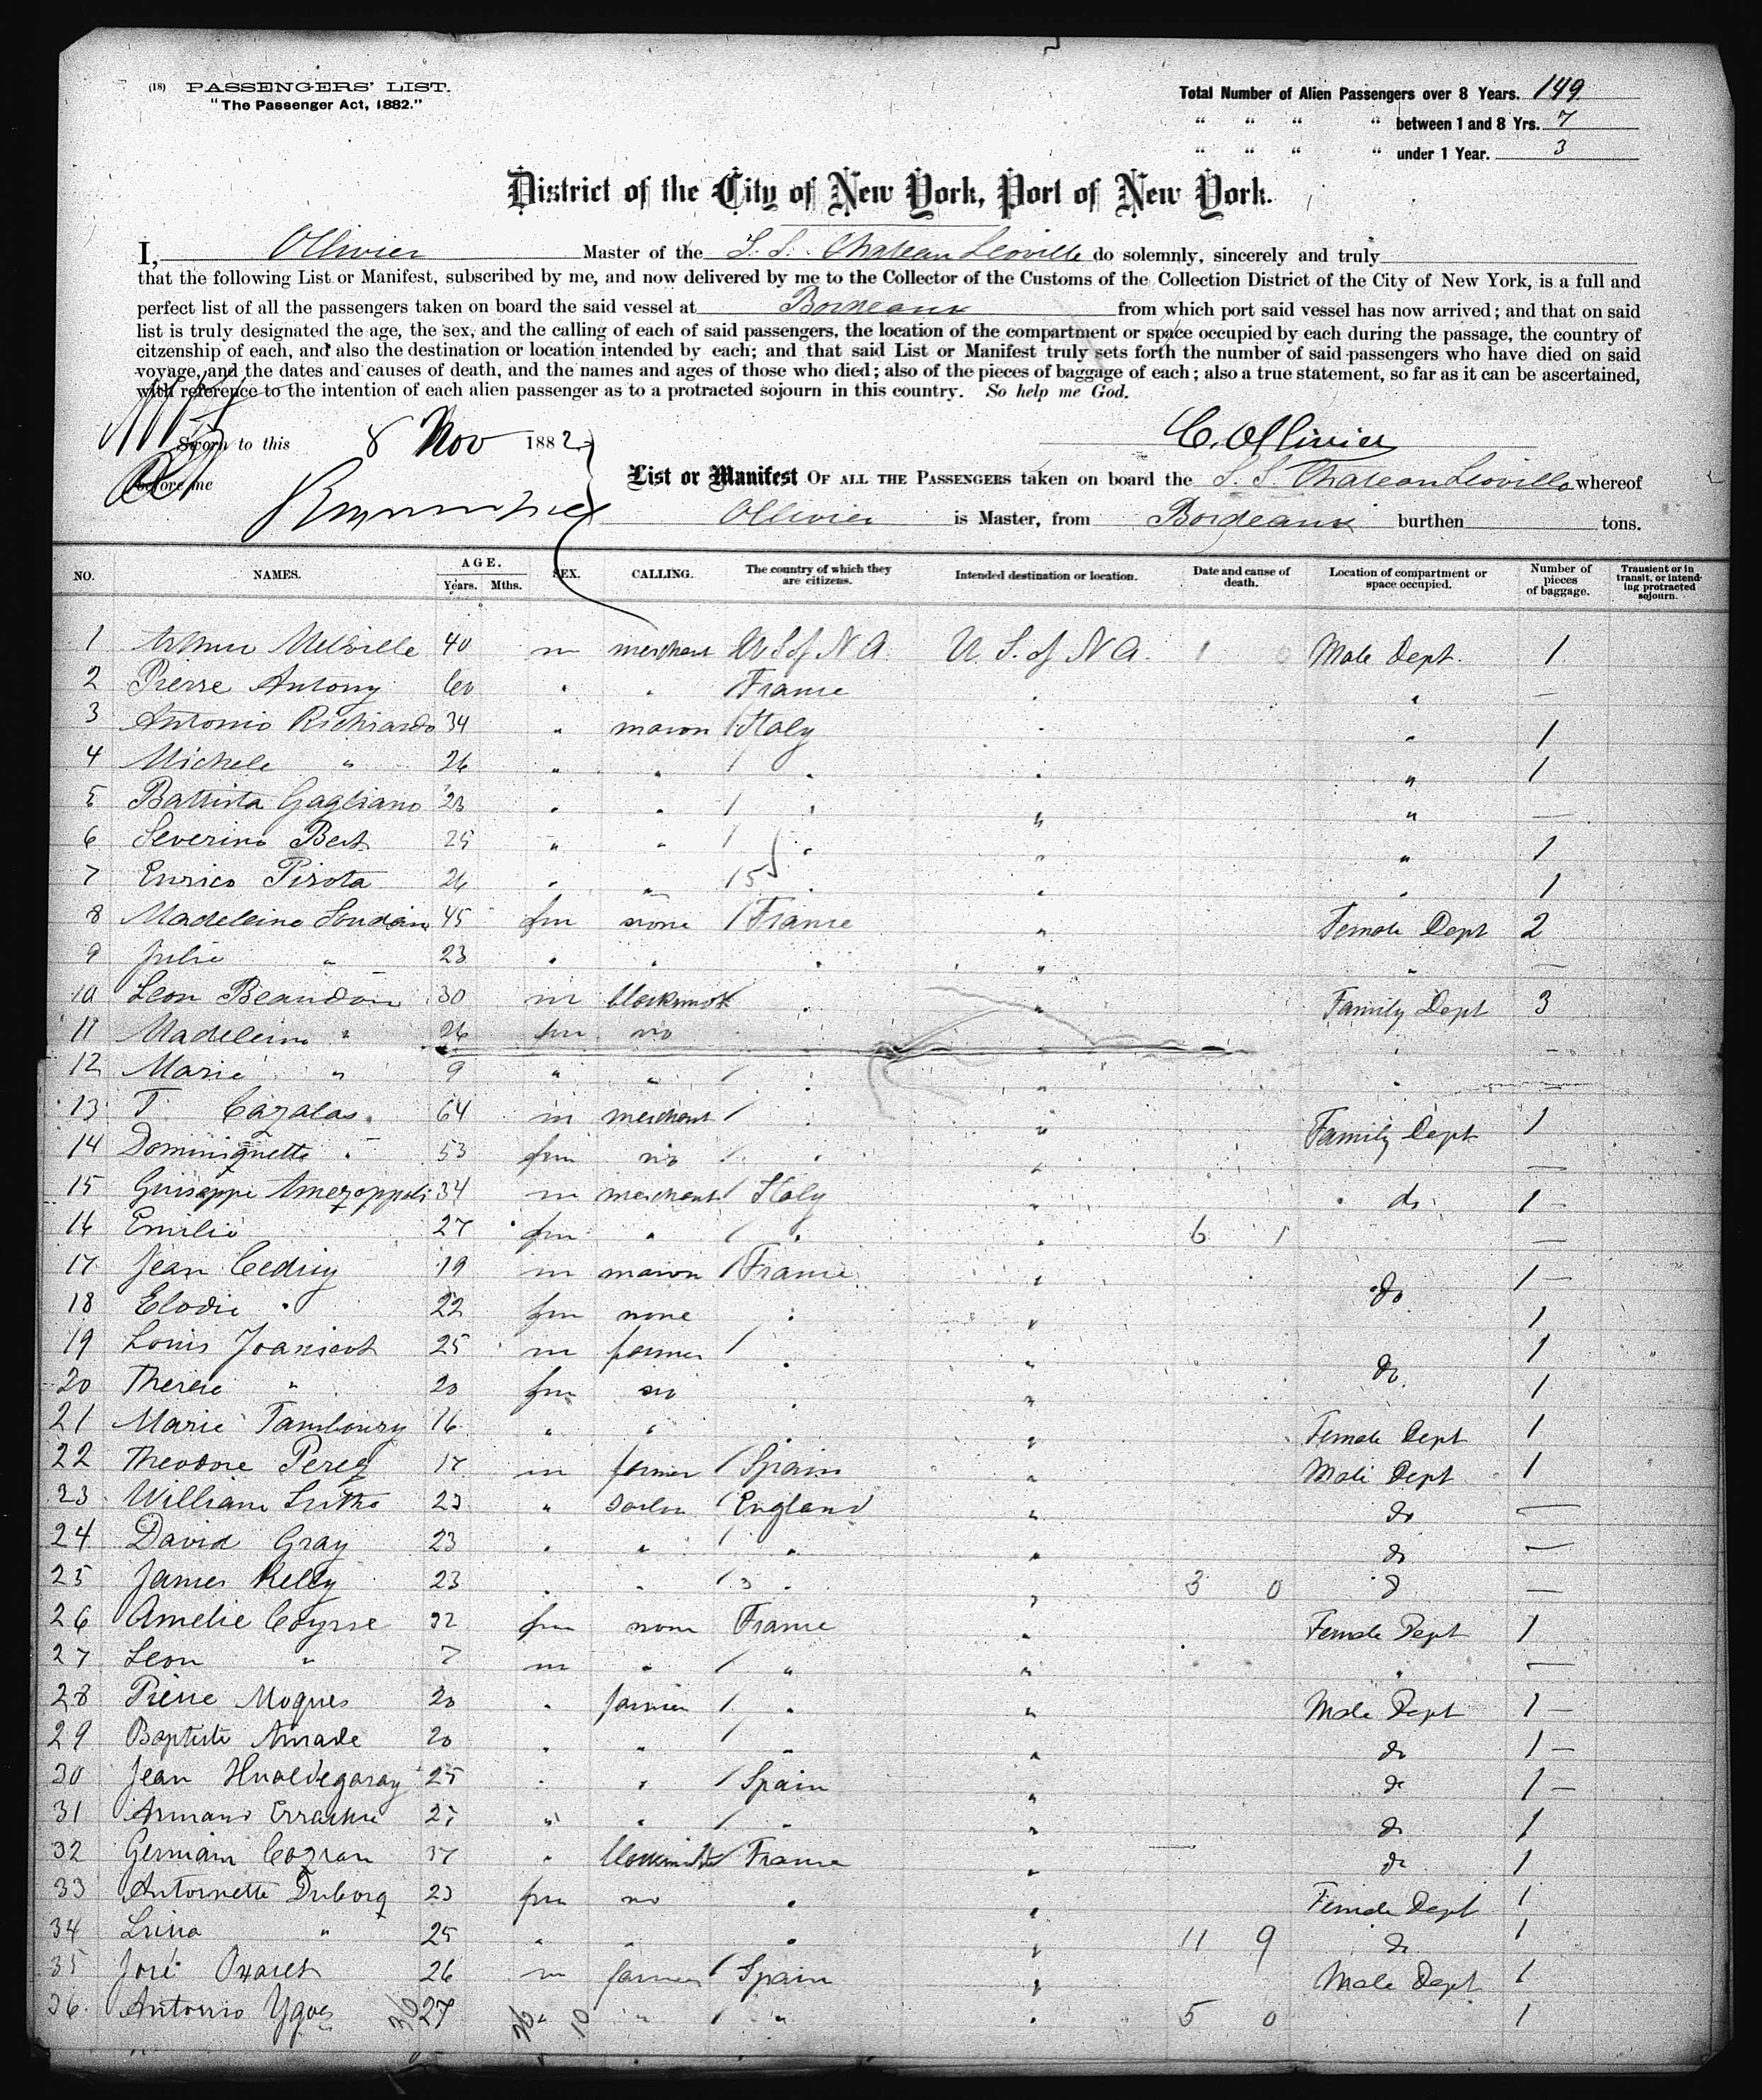 (18) PASSENGERS' LIST.
"The Passenger Act, 1882."
Total Number of Alien Passengers over 8 Years. 149
" " " " between 1 and 8 Yrs. 7
" " " " under 1 Year. 3
District of the City of New York, Port of New York.
I, Ollivier Master of the S. S. Chateau Leoville do solemnly, sincerely and truly
that the following List or Manifest, subscribed by me, and now delivered by me to the Collector of the Customs of the Collection District of the City of New York, is a full and
perfect list of all the passengers taken on board the said vessel at Bordeaux from which port said vessel has now arrived; and that on said
list is truly designated the age, the sex, and the calling of each of said passengers, the location of the compartment or space occupied by each during the passage, the country of
citzenship of each, and also the destination or location intended by each; and that said List or Manifest truly sets forth the number of said passengers who have died on said
voyage, and the dates and causes of death, and the names and ages of those who died; also of the pieces of baggage of each; also a true statement, so far as it can be ascertained,
with reference to the intention of each alien passenger as to a protracted sojourn in this country. So help me God.
Sworn to this 8 Nov 1882 C. Ollivier
before me
List or Manifest OF ALL THE PASSENGERS taken on board the S. S. Chateau Leoville whereof
Ollivier is Master, from Bordeaux burthen tons.
NO. NAMES. AGE. Years. Mths. SEX. CALLING. The country of which they are citizens. Intended destination or location. Date and cause of death. Location of compartment or space occupied. Number of pieces of baggage. Transient or in transit, or intending protracted sojourn.
1 Arthur Melville 40 m merchant U S of N A. U. S. of N A. 1 0 Male Dept. 1
2 Pierre Antony 60 " " France " " —
3 Antonio Richiardo 34 " mason Italy " " 1
4 Michele " 26 " " " " " 1
5 Battista Gagliano 23 " " " " " —
6 Severino Bert 25 " " " " " 1
7 Enrico Pirota 26 " " 5 " " " 1
8 Madeleine Soudain 45 fm none France " Female Dept 2
9 Julie " 23 " " " " " —
10 Leon Beaudon 30 m blacksmith " " Family Dept 3
11 Madeleine " 26 fm no " —
12 Marie " 9 " " " " " —
13 T Cazalas 64 m merchant " " Family Dept 1
14 Dominiquette " 53 fm no " " —
15 Guiseppe 34 m merchant Italy " do 1 —
16 Emilie 27 fm " " " 6 1 —
17 Jean Cedriy 19 m mason France " do 1 —
18 Elodie " 22 fm none " " 1
19 Louis Joanicot 25 m farmer " " do 1
20 Therese " 20 fm no " " 1
21 Marie Tamboury 16 " " " " Female Dept 1
22 Theodore Perez 17 m farmer Spain " Male Dept 1
23 William 23 " sailor England " do —
24 David Gray 23 " " " " do —
25 James Kelly 23 " " 3 " " 3 0 d —
26 Amelie Coysse 32 fm none France " Female Dept 1
27 Leon " 7 m " " " " —
28 Pierre Moques 20 " farmer " " Male Dept 1 —
29 Baptiste Amade 20 " " " " do 1 —
30 Jean Hualdegaray 25 " " Spain " do 1 —
31 Armand 27 " " " " do 1
32 Germain Cazran 37 " blacksmith France " do 1
33 Antoinette Duborq 23 fm no " " Female Dept 1
34 " 25 " " " " 11 9 do 1
35 José 26 m farmer Spain " Male Dept 1
36 Antonio Ygoes 27 " " " " 5 0 1
36 26 10